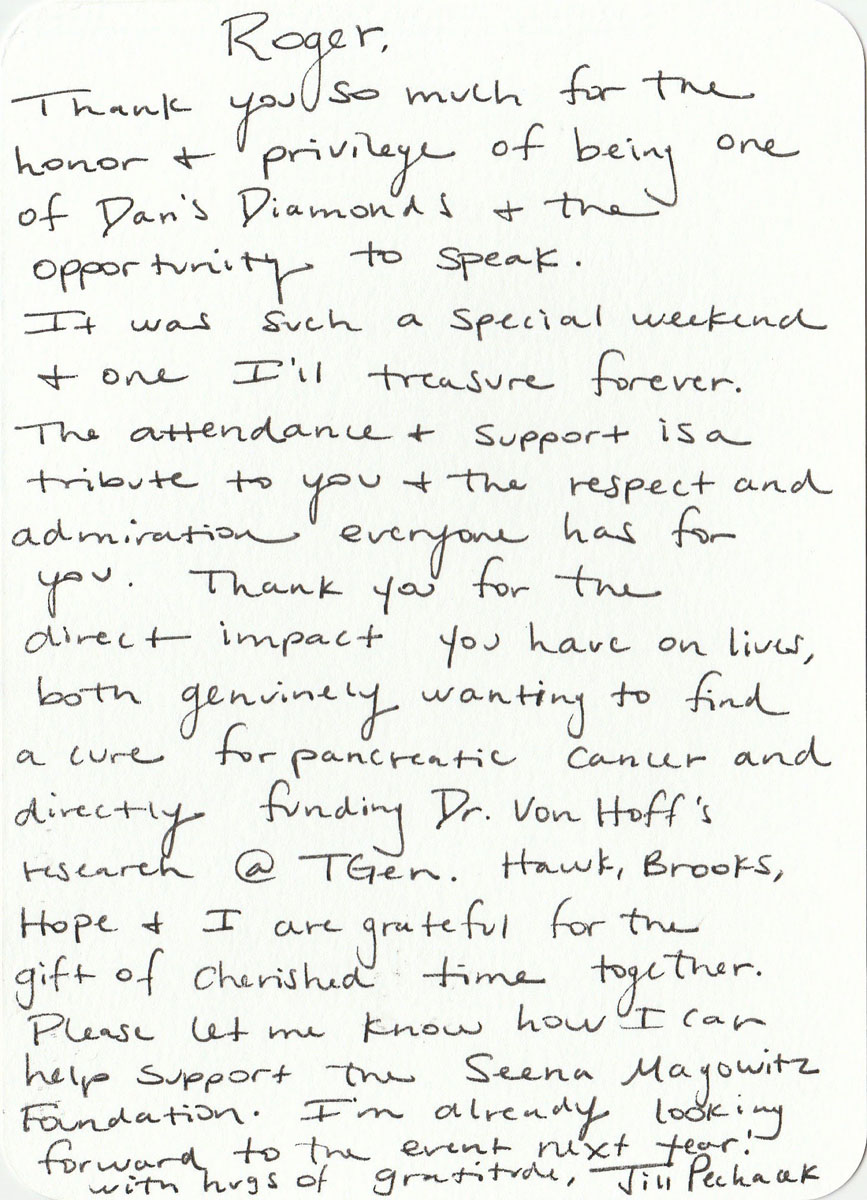 Roger,
Thank you so much for the
honor + privilege of being one
of Dan's Diamonds + the
opportunity to speak.
It was such a special weekend
+ one I'll treasure forever.
The attendance + support is a
tribute to you + the respect and
admiration everyone has for
you. Thank you for the
direct impact you have on lives,
both genuinely wanting to find
a cure for pancreatic cancer and
directly funding Dr. Von Hoff's
research @ TGen. Hawk, Brooks,
Hope + I are grateful for the
gift of cherished time together.
Please let me know how I can
help support the Seena Magowitz
Foundation. I'm already looking
forward to the event next year!
with hugs of gratitude, Jill